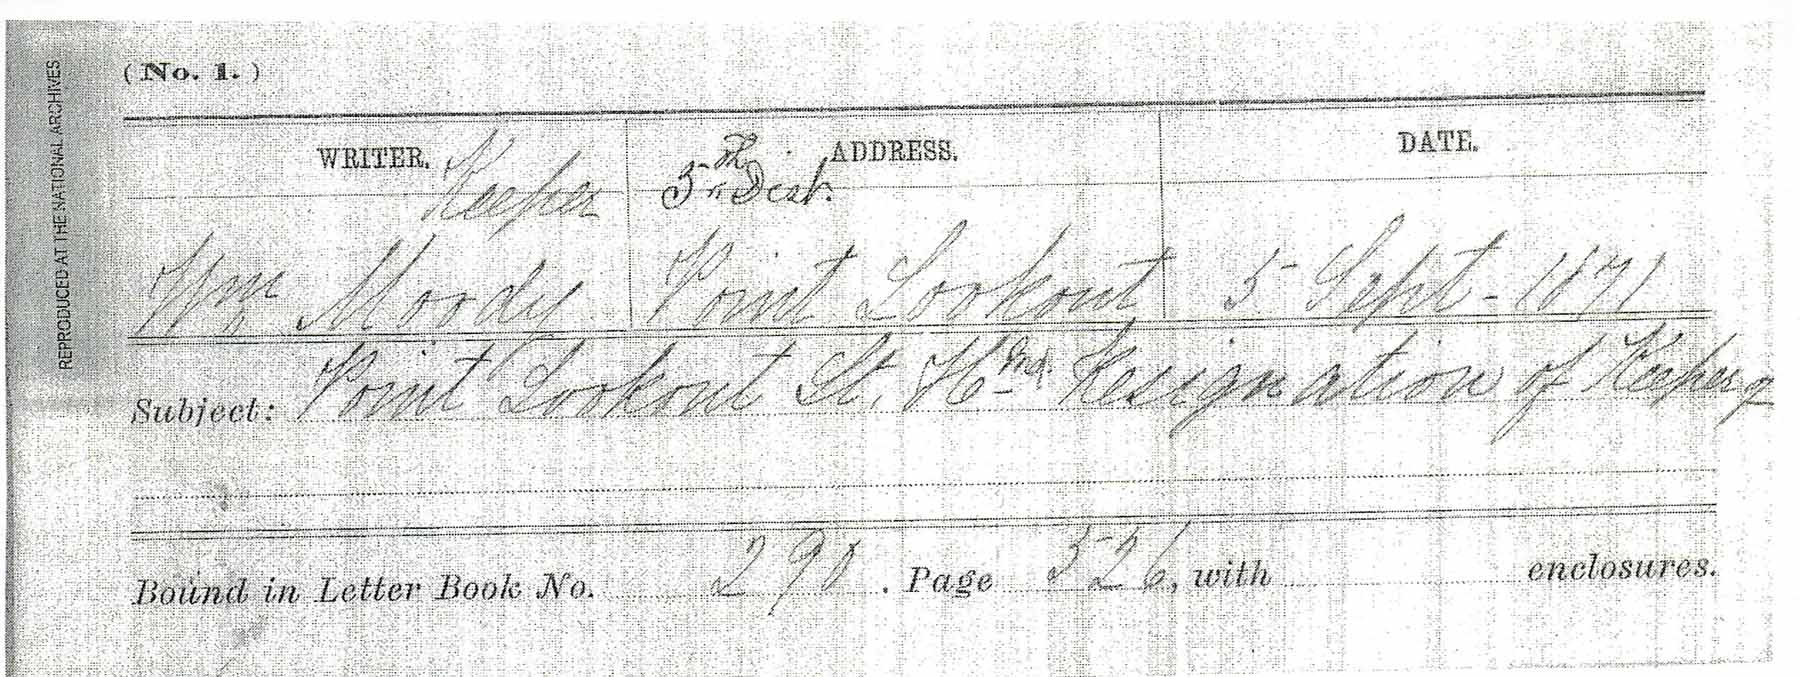 REPRODUCED AT THE NATIONAL ARCHIVES
(No. 1.)
WRITER. ADDRESS. DATE.
Keeper 5th Dist.
Wm Moody Point Lookout 5 Sept - 1871
Subject: Point Lookout Lt. H- Md. Resignation of Keeper of
Bound in Letter Book No. 290. Page 526, with enclosures.